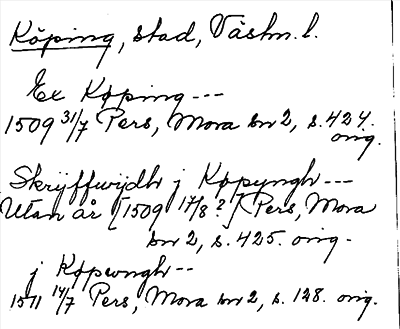 Köping, stad, Västm. l.
Ex Køping ---
1509 31/7 Pers, Mora br 2, s. 424.
orig.
Skryffwijdh j Køpyngh ---
Utan år [1509 17/8 ?] Pers, Mora
br 2, s. 425. orig.
j Køpwngh --
1511 14/7 Pers, Mora br 2, s. 128. orig.